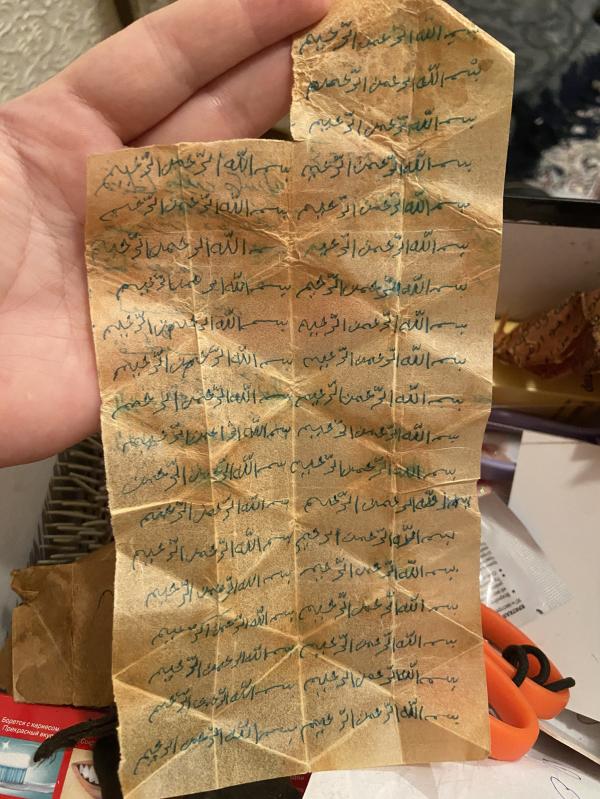 بسم الله الرّحمن الرّحيم
بسم الله الرّحمن الرّحيم
بسم الله الرّحمن الرّحيم
بسم الله الرّحمن الرّحيم
بسم الله الرّحمن الرّحيم
بسم الله الرّحمن الرّحيم
بسم الله الرّحمن الرّحيم
بسم الله الرّحمن الرّحيم
بسم الله الرّحمن الرّحيم
بسم الله الرّحمن الرّحيم
بسم الله الرّحمن الرّحيم
بسم الله الرّحمن الرّحيم
بسم الله الرّحمن الرّحيم
بسم الله الرّحمن الرّحيم
بسم الله الرّحمن الرّحيم
بسم الله الرّحمن الرّحيم
بسم الله الرّحمن الرّحيم
بسم الله الرّحمن الرّحيم
بسم الله الرّحمن الرّحيم
بسم الله الرّحمن الرّحيم
بسم الله الرّحمن الرّحيم
بسم الله الرّحمن الرّحيم
بسم الله الرّحمن الرّحيم
بسم الله الرّحمن الرّحيم
بسم الله الرّحمن الرّحيم
بسم الله الرّحمن الرّحيم
بسم الله الرّحمن الرّحيم
بسم الله الرّحمن الرّحيم
بسم الله الرّحمن الرّحيم
بسم الله الرّحمن الرّحيم
بسم الله الرّحمن الرّحيم
بسم الله الرّحمن الرّحيم
بسم الله الرّحمن الرّحيم
بسم الله الرّحمن الرّحيم
بسم الله الرّحمن الرّحيم
Борется с кариесом
Прекрасный вкус